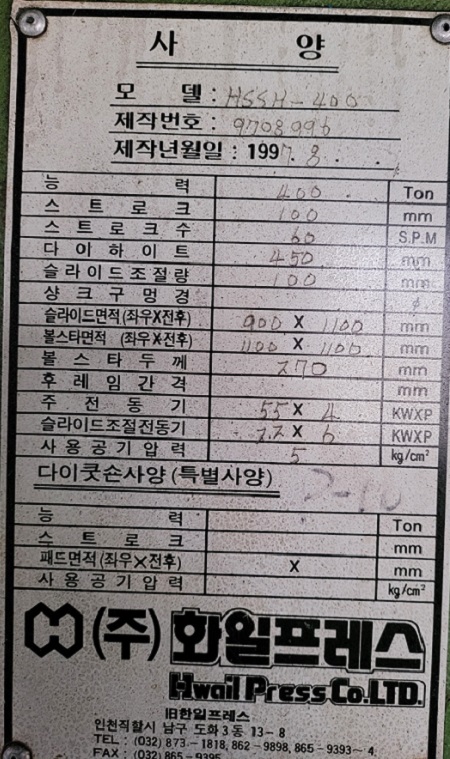 사 양
모 델 : HSSH-400
제작번호 : 9708096
제작년월일 : 1997. 8.
능 력 400 Ton
스 트 로 크 100 mm
스 트 로 크 수 60 S.P.M
다 이 하 이 트 450 mm
슬라이드조절량 100 mm
샹 크 구 멍 경 ϕ
슬라이드면적(좌우X전후) 900 X 1100 mm
볼스타면적 (좌우X전후) 1100 X 1100 mm
볼 스 타 두 께 270 mm
후 레 임 간 격 mm
주 전 동 기 55 X 4 KWXP
슬라이드조절전동기 2.2 X 6 KWXP
사 용 공 기 압 력 5 kg/cm²
다이쿳손사양 (특별사양)
능 력 Ton
스 트 로 크 mm
패드면적(좌우X전후) X mm
사 용 공 기 압 력 kg/cm²
(주) 화일프레스
Hwail Press Co.LTD.
旧한일프레스
인천직할시 남구 도화 3 동 13-8
TEL : (032) 873-1818, 862-9898, 865-9393~4
FAX : (032) 865-9395